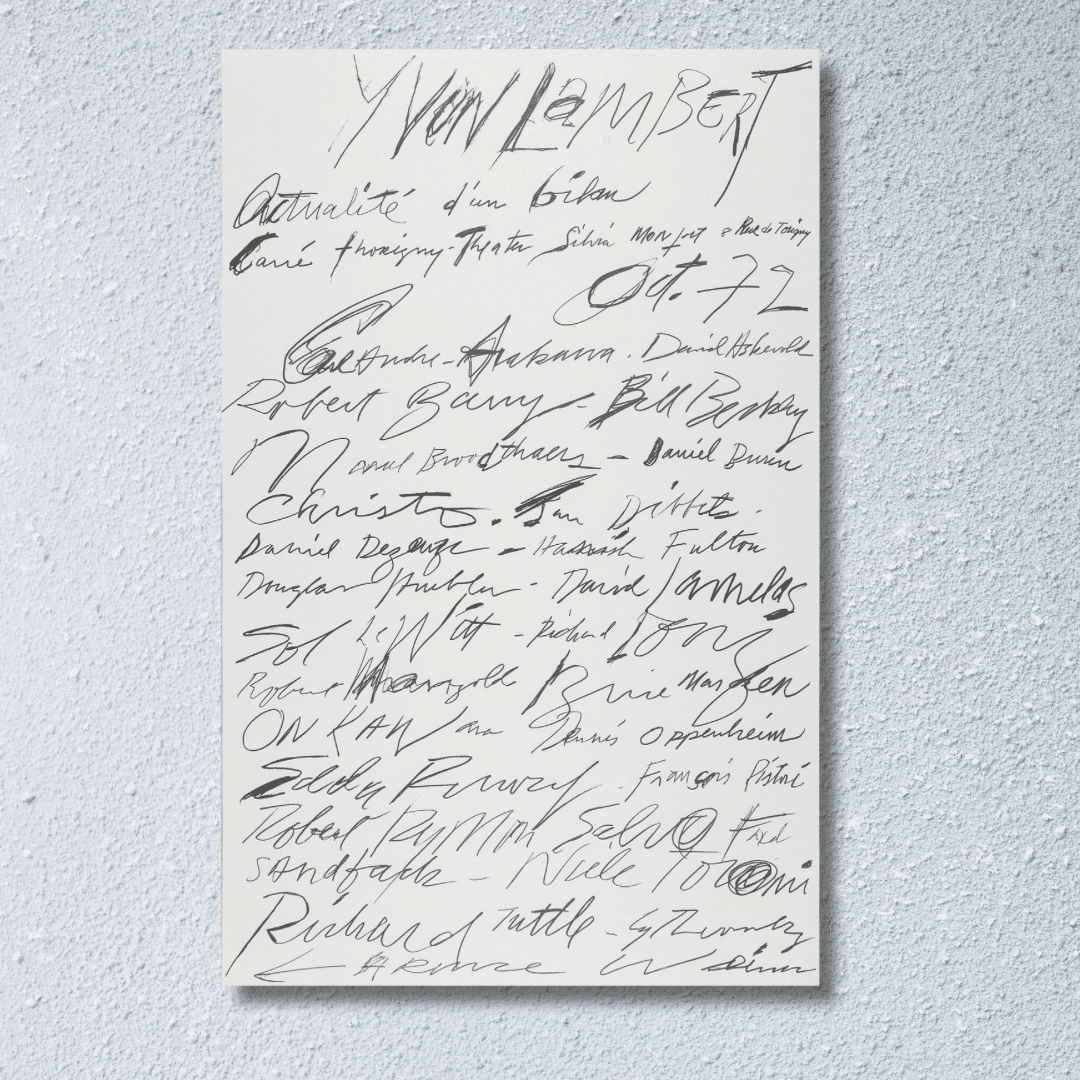 YVON LaMBERT
Actualité d'un bilan
Carré Thorigny-Theater Silvia Monfort & Rue de Torigny
Oct. 72
Carl Andre - Arakawa . David Askevold
Robert Barry - Bill Beckley
Marcel Broodthaers - Daniel Buren
Christo . Jan Dibbets .
Daniel Dezeuze - Hamish Fulton
Douglas Huebler - David Lamelas
Sol LeWitt - Richard Long
Robert Mangold Brice Marden
ON KAWara Dennis Oppenheim
François Pistré
Robert RyMan Salvo Fred
SAndback - Niele Toroni
Richard Tuttle - Cy Twombly